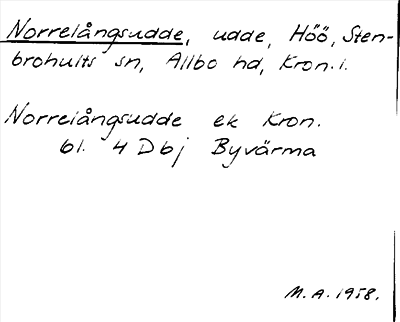 Norrelångsudde, udde, Höö, Sten-
brohults sn, Allbo hd, Kron. l.
Norrelångsudde ek Kron.
bl. 4 D bj Byvärma
M.A. 1958.